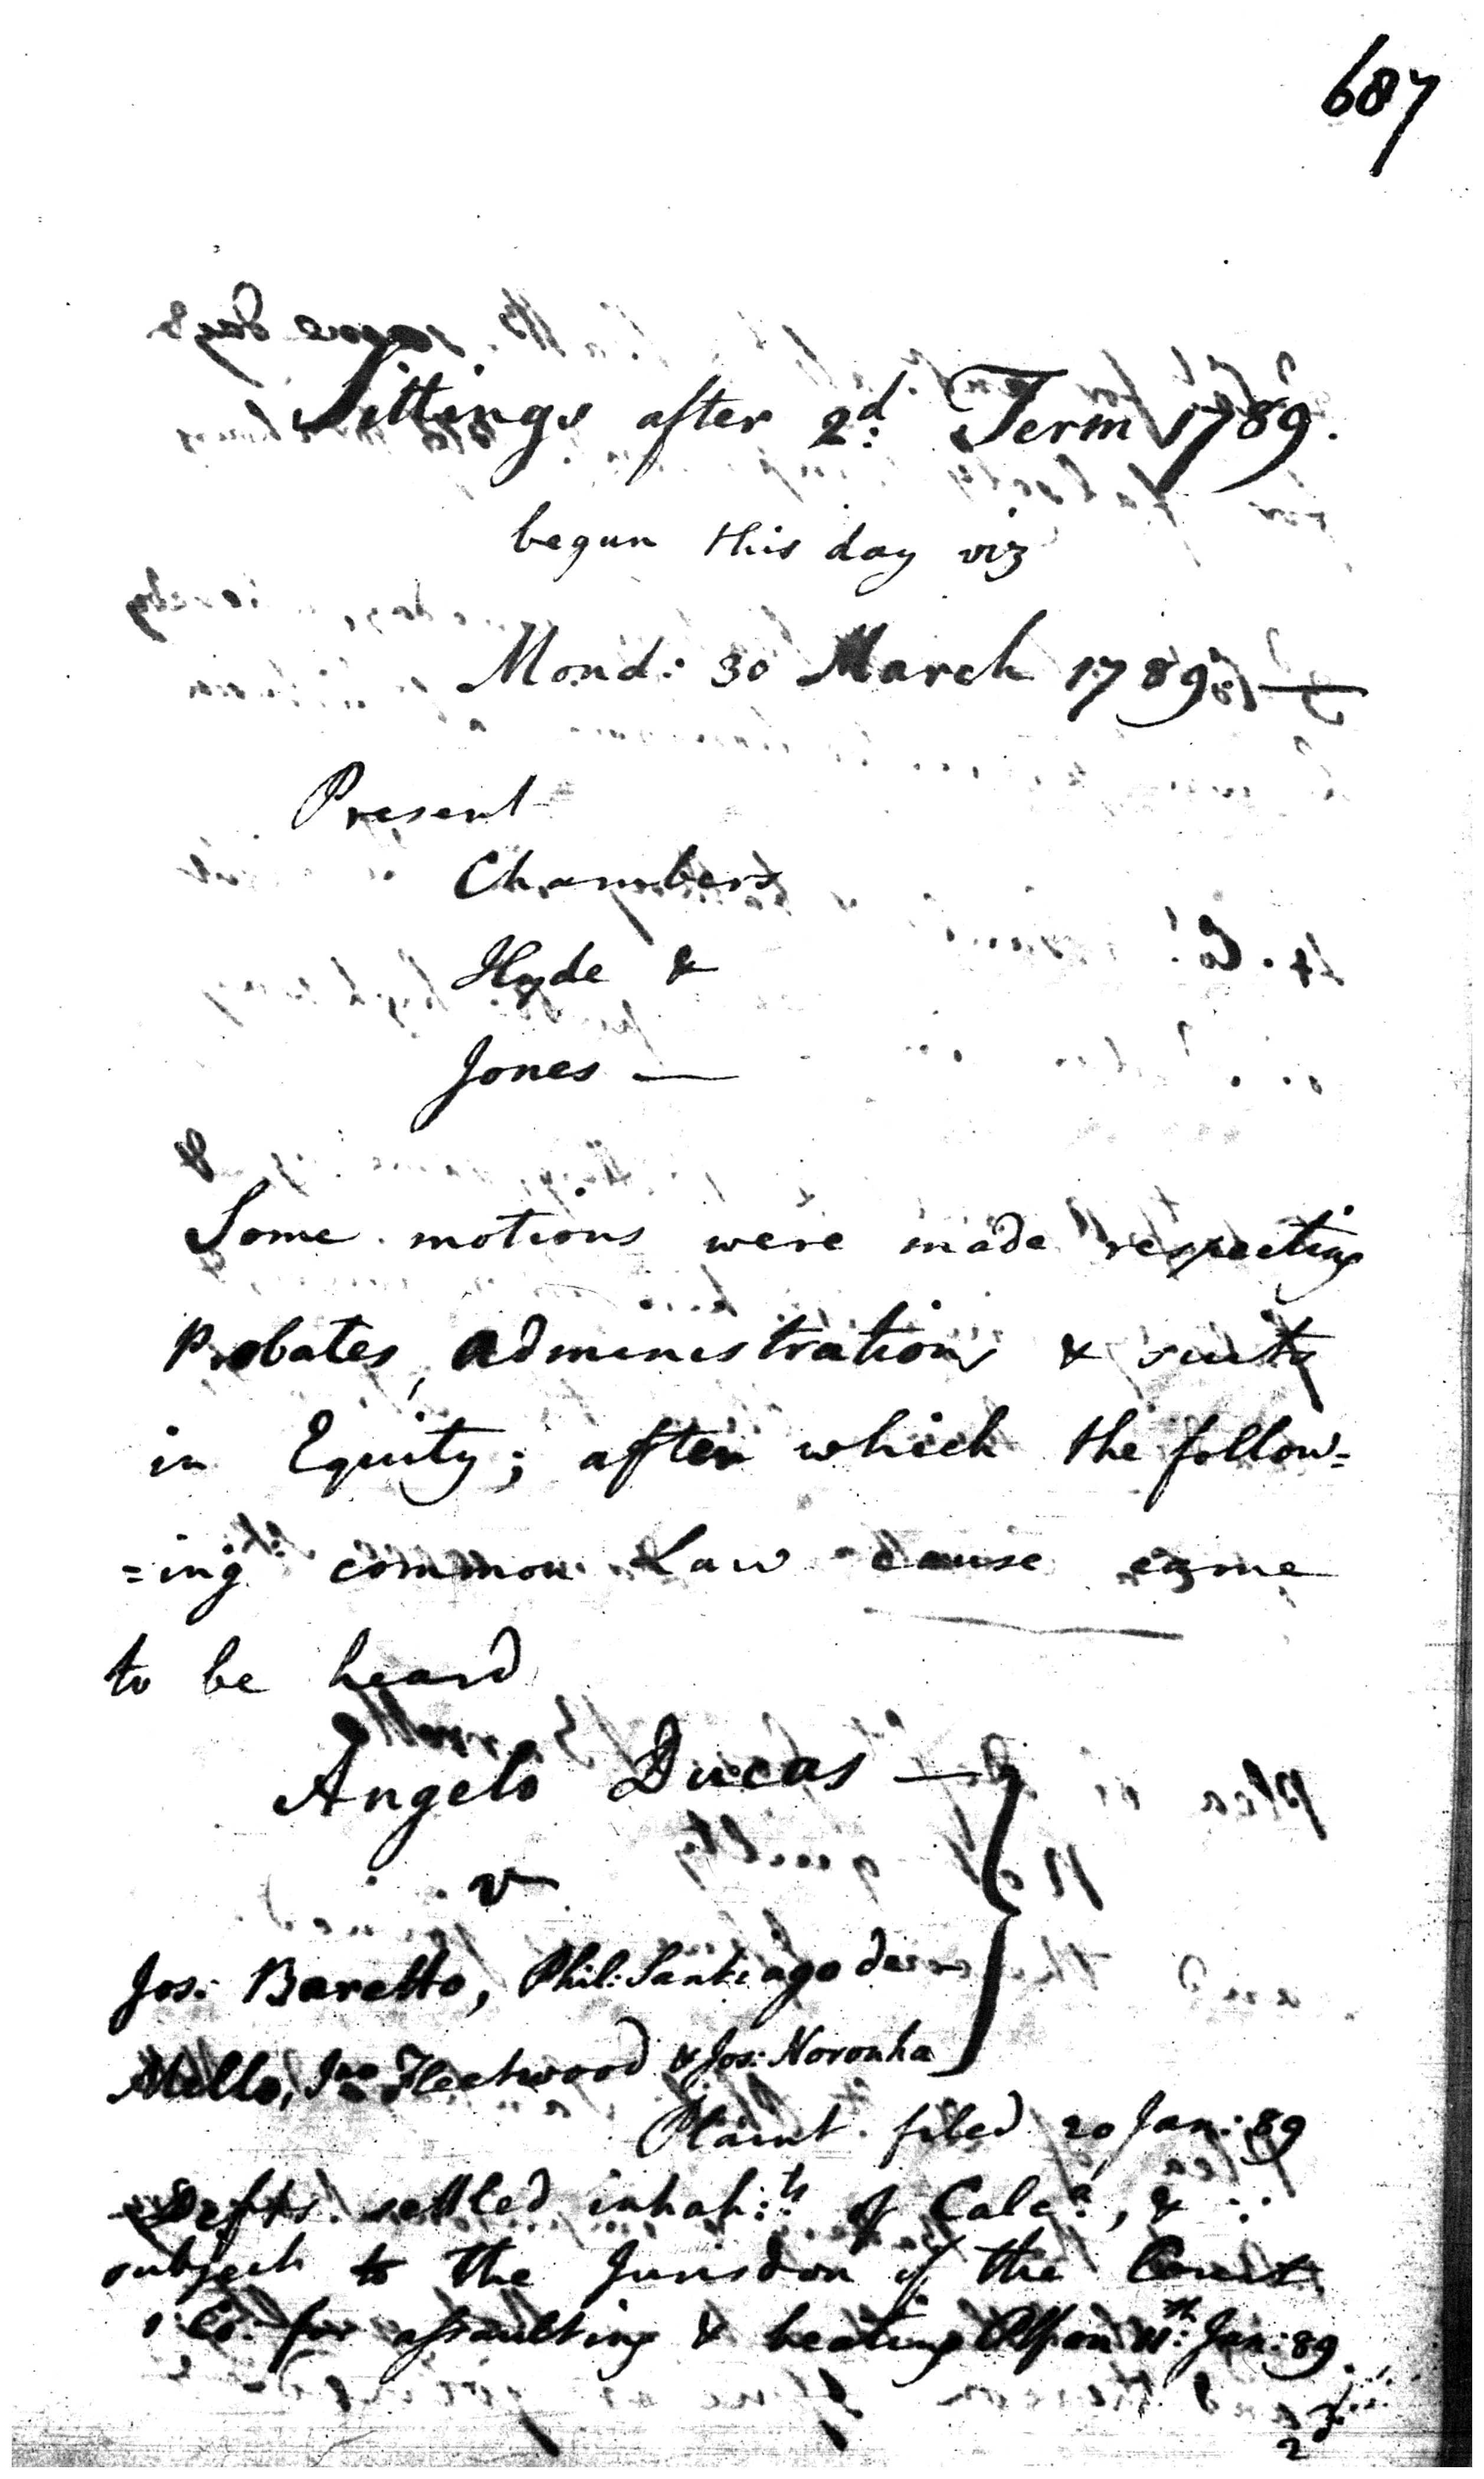 687
Sittings after 2d: Term 1789.
begun this day viz
Mond: 30 March 1789. —
Present
Chambers
Hyde &
Jones —
Some motions were made respecting
Probates, administrations & suits
in Equity; after which the follow=
=ing common Law cause came
to be heard
Angelo Ducas —
v
Jos: Baretto, Phil: Santiago de
Mello, Jno Fleetwood & Jos: Noronha
Plaint filed 20 Jan: 89
Defts. settled inhab:ts of Calca:, &
subject to the Jurisdon of the Court
1 Co. for assaulting & beating Plf on 11th: Jan: 89.
2